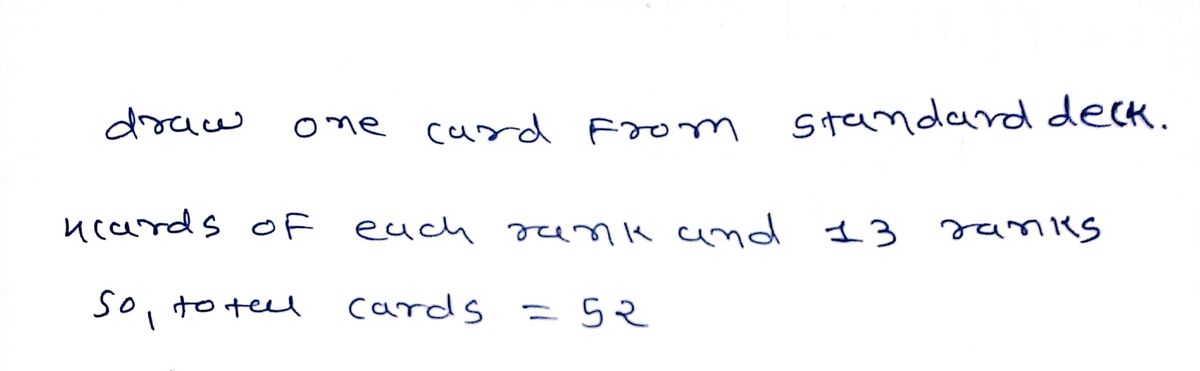 draw one card From standard deck.
4cards of each rank and 13 ranks
So, total cards = 52